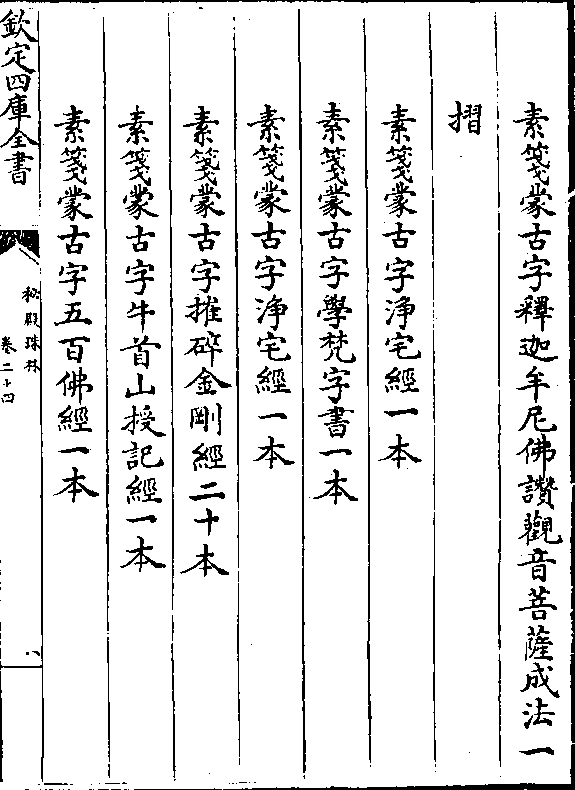 素箋蒙古字釋迦牟尼佛讚觀音菩薩成法一
摺
素箋蒙古字淨宅經一本
素箋蒙古字學梵字書一本
素箋蒙古字淨宅經一本
素箋蒙古字摧碎金剛經二十本
素箋蒙古字牛首山授記經一本
素箋蒙古字五百佛經一本
欽定四庫全書
秘殿珠林
卷二十四
八